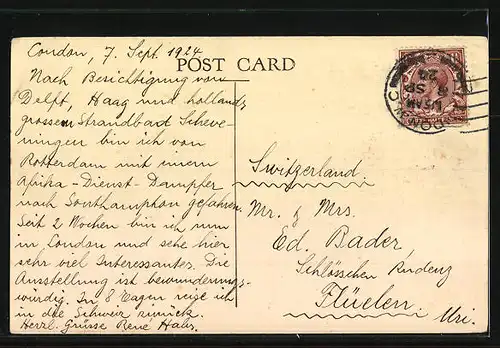 London, 7. Sept. 1924
POST CARD
Nach Besichtigung von
Delft, Haag und hollands
grossem Strandbad Scheve-
ningen bin ich von
Rotterdam mit einem
Afrika-Dienst-Dampfer
nach Southampton gefahren.
Seit 2 Wochen bin ich nun
in London und sehe hier
sehr viel Interessantes. Die
Ausstellung ist bewunderungs-
würdig. In 8 Tagen reise ich
in die Schweiz zurück.
Herzl. Grüsse René
Switzerland.
Mr. & Mrs.
Ed. Bader,
Schlösschen Rudenz
Flüelen
Uri.
LONDON
1.15AM
8 SP
24